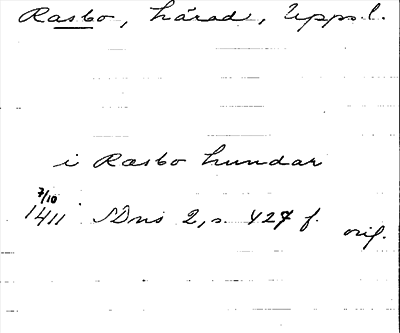 Rasbo, härad, Upps. l.
i Rasbo hundar
7/10
1411 SDns 2, s. 427 f. orig.